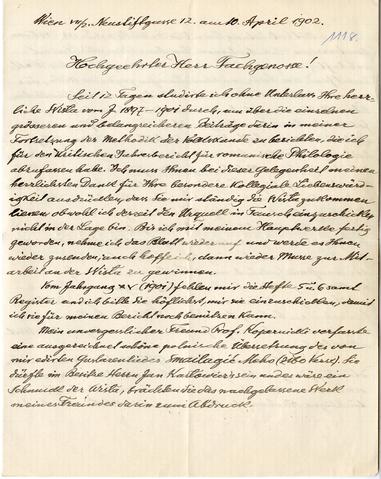 Wien VII/2. Neustiftgasse 12. am 10. April 1902.
118.
Hochgeehrter Herr Fachgenosse!
Seit 12 Tagen studirte ich ohne Unterlass Ihre herr-
liche Wisła vom J. 1897–1901 durch, um über die einzelnen
grösseren und belangreicheren Beiträge darin in meiner
Fortsetzung der Methodik der Volkskunde zu berichten, die ich
für den kritischen Jahresbericht für romanische Philologie
abzufassen habe. Ich muss Ihnen bei dieser Gelegenheit meinen
herzlichsten Dank für Ihre besondere kollegiale Liebenswür-
digkeit ausdrücken, dass Sie mir ständig die Wisła zukommen
liessen obwohl ich derzeit den Urquell im Tausch einzuschicken
nicht in der Lage bin. Bis ich mit meinem Hauptwerke fertig
geworden, nehme ich das Blatt wieder auf und werde es Ihnen
wieder zusenden, auch hoffe ich, dann wieder Musse zur Mit-
arbeit an der Wisła zu gewinnen.
Vom Jahrgang XV (1901) fehlen mir die Hefte 5 u. 6 samt
Register und ich bitte Sie höflichst, mir sie einzuschicken, damit
ich sie für meinen Bericht noch benützen kann.
Mein unvergesslicher Freund Prof. Kopernicki verfasste
eine ausgezeichnet schöne polnische Übersetzung des von
mir edirten Guslarenliedes Smailagić Meho (2160 Verse). Sie
dürfte im Besitze Herrn Jan Karłowicz's sein und es wäre ein
Schmuck der Wisła, brächten Sie dies nachgelassene Werk
meines Freundes darin zum Abdruck.